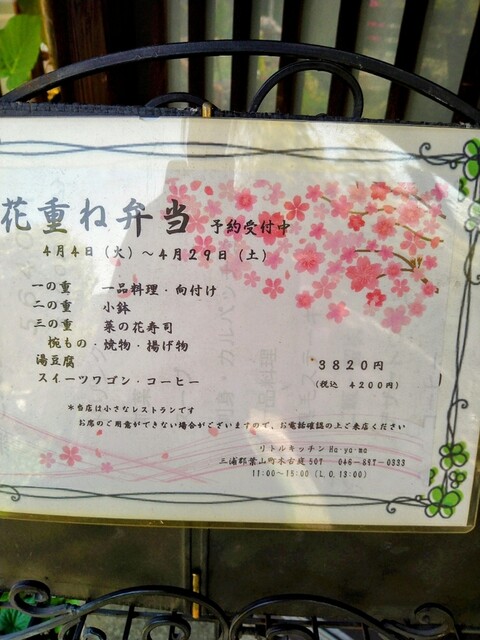 花重ね弁当 予約受付中
4月4日（火）～4月29日（土）
一の重 一品料理・向付け
二の重 小鉢
三の重 菜の花寿司
椀もの・焼物・揚げ物
湯豆腐
3820円
スイーツワゴン・コーヒー
（税込 4200円）
＊当店は小さなレストランです
お席のご用意ができない場合がございますので、お電話確認の上ご来店ください
リトルキッチン Ha-ya-ma
三浦郡葉山町木古庭507 046-887-0333
11:00～15:00 (L.O.13:00)